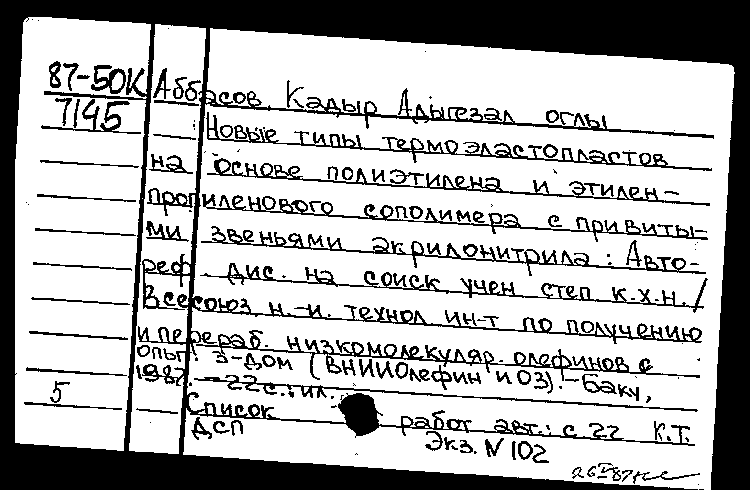 87-50К Аббасов, Кадыр Адыгезал оглы
7145 Новые типы термоэластопластов
на основе полиэтилена и этилен-
пропиленового сополимера с привиты-
ми звеньями акрилонитрила: Авто-
реф. дис. на соиск. учен. степ. к.х.н. /
Всесоюз. н.-и. технол. ин-т по получению
и перераб. низкомолекуляр. олефинов с
опыт. з-дом (ВНИИОлефин и ОЗ). - Баку,
1987. - 22 с.: ил.
5 Список работ авт.: с. 22 К.Т.
ДСП Экз. N 102